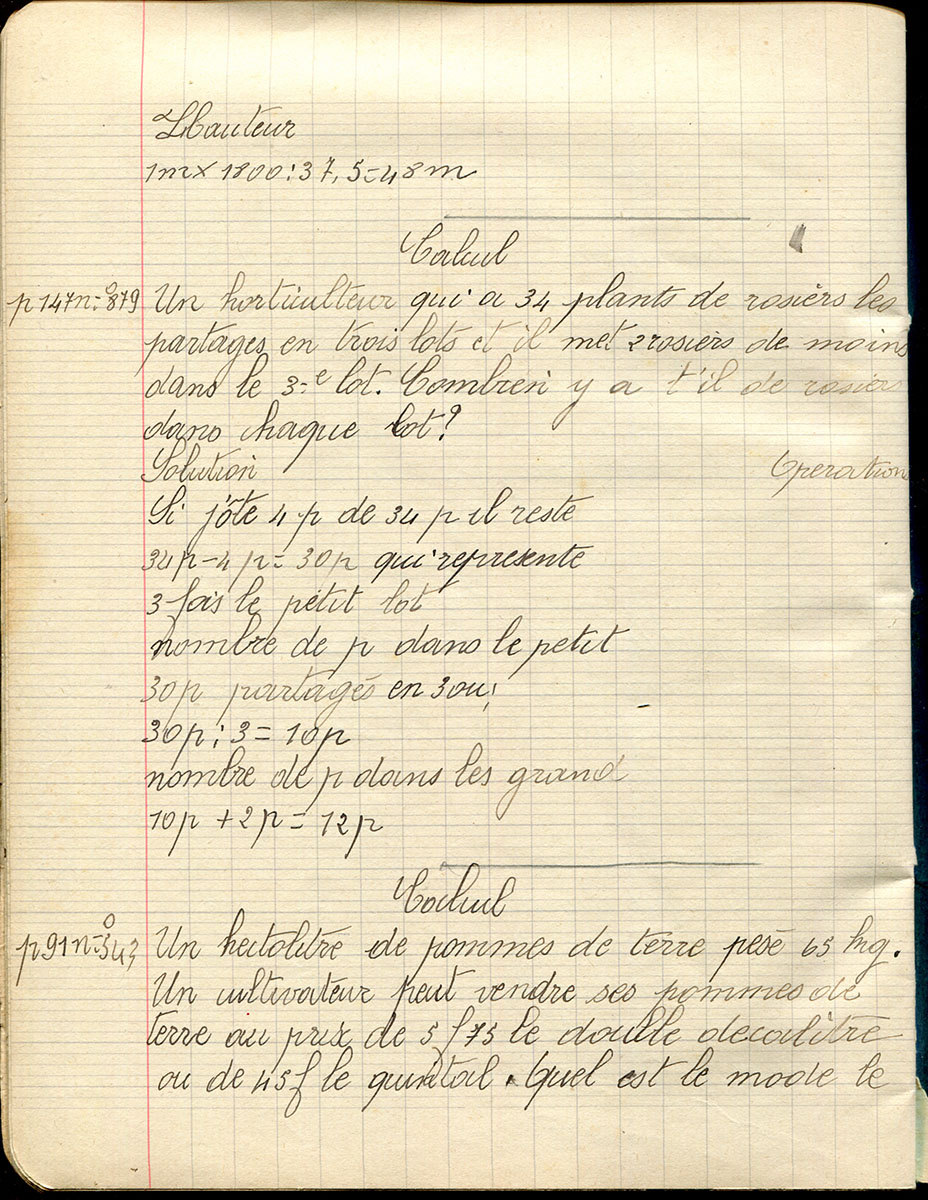 Hauteur
1m x 1800 : 37,5 = 48m
Calcul
p 147 n=º 879 Un horticulteur qui a 34 plants de rosiers les
partages en trois lots et il met 2 rosiers de moins
dans le 3=e lot. Combien y a t'il de rosiers
dans chaque lot?
Solution Opération
Si j'ôte 4 p de 34 p il reste
34p - 4p = 30p qui représente
3 fois le petit lot
nombre de p dans le petit
30p partagés en 3 ou :
30p : 3 = 10p
nombre de p dans les grand
10p + 2p = 12p
Calcul
p 91 n=º 543 Un hectolitre de pommes de terre pese 65 kg.
Un cultivateur peut vendre ses pommes de
terre au prix de 5f75 le double decalitre
ou de 45f le quintal. Quel est le mode le